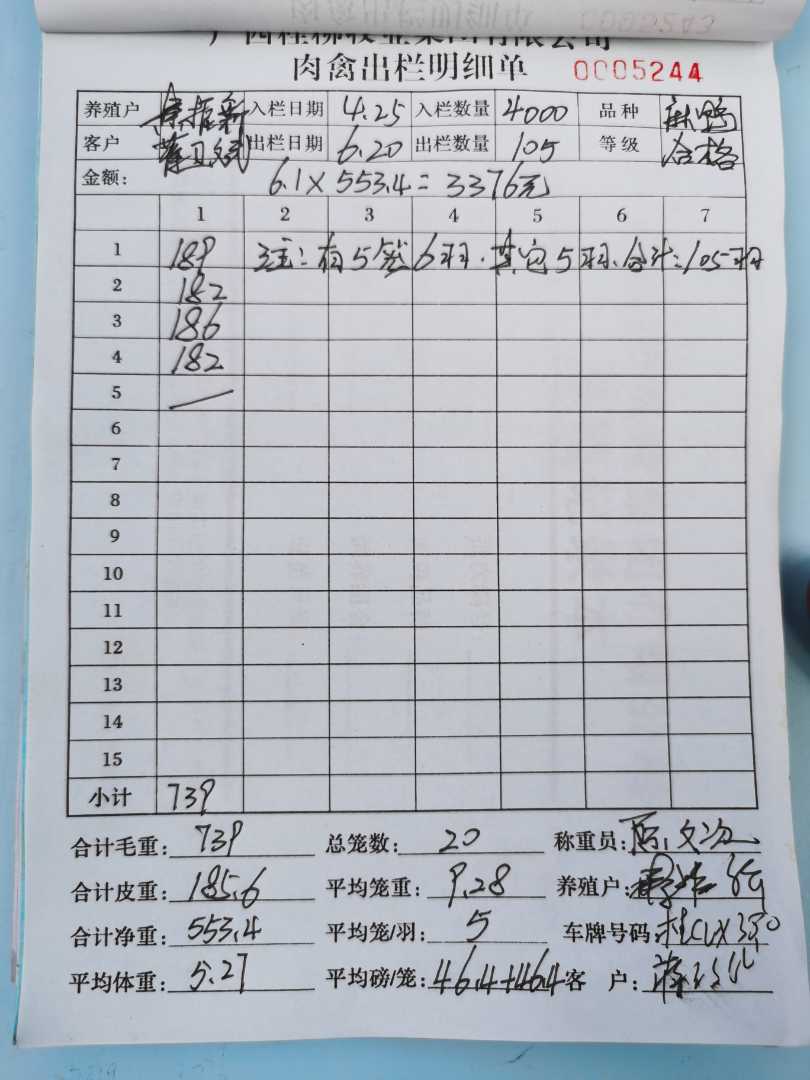 肉禽出栏明细单 0005244
养殖户 入栏日期 4.25 入栏数量 4000 品种 麻鸭
客户 出栏日期 6.20 出栏数量 105 等级 合格
金额: 6.1×553.4=3376元
1 2 3 4 5 6 7
1 189 注:有5笼6羽.其它5羽.合计:105羽
2 182
3 186
4 182
5
6
7
8
9
10
11
12
13
14
15
小计 739
合计毛重: 739 总笼数: 20 称重员:
合计皮重: 185.6 平均笼重: 9.28 养殖户:
合计净重: 553.4 平均笼/羽: 5 车牌号码:
平均体重: 5.27 平均磅/笼: 46.4+46.4 客 户: